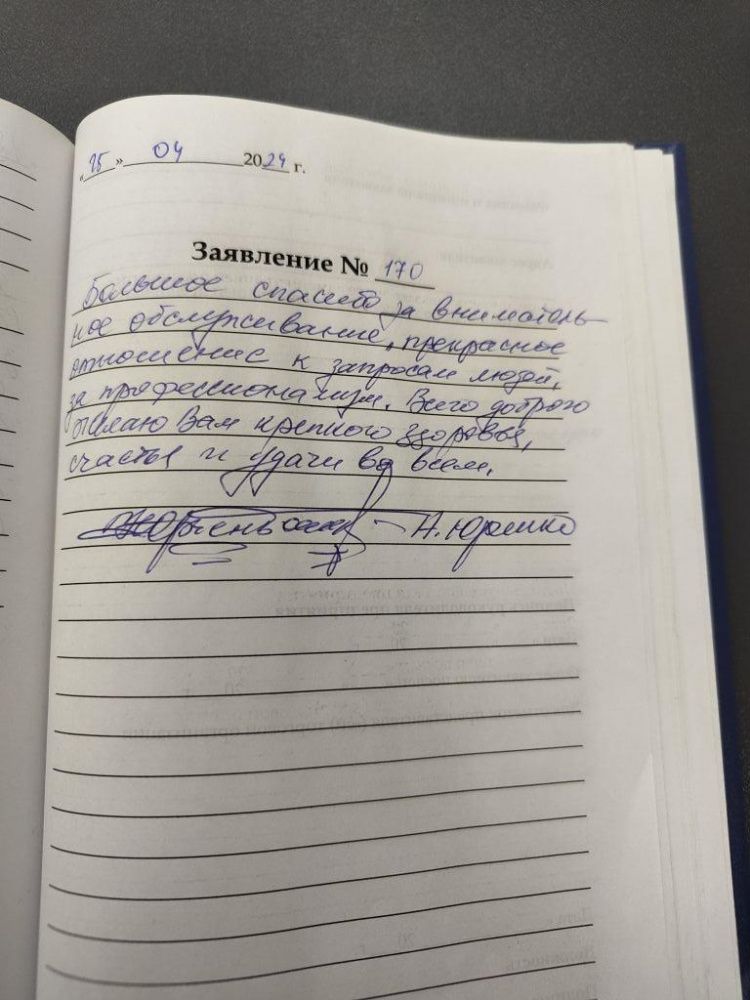 «15» 04 2024 г.
Заявление № 170
Большое спасибо за вниматель-
ное обслуживание, прекрасное
отношение к запросам людей,
за профессионализм. Всего доброго
желаю Вам крепкого здоровья,
счастья и удачи во всём.